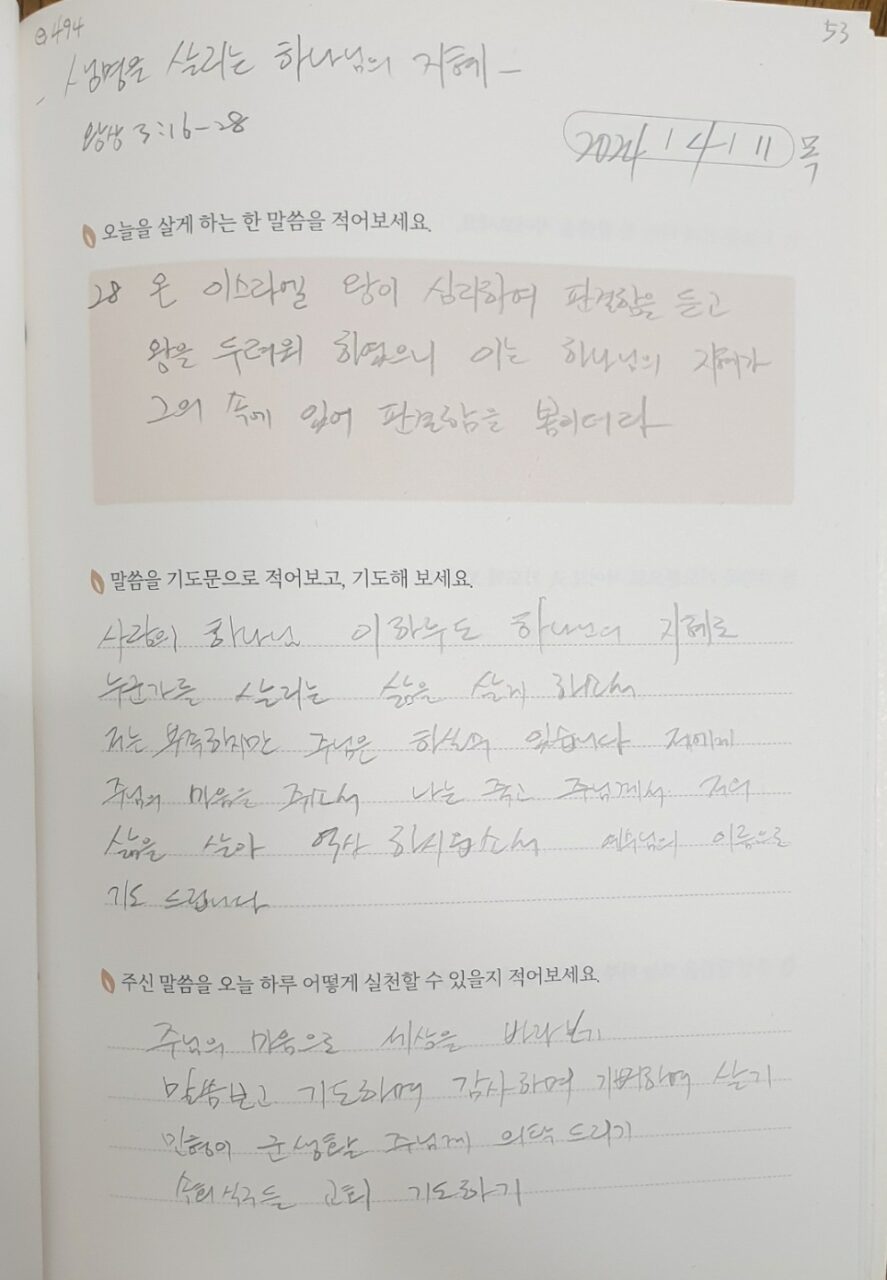 494
53
생명을 살리는 하나님의 지혜
왕상 3:16-28
2024 / 4 / 11 목
오늘을 살게 하는 한 말씀을 적어보세요.
28 온 이스라엘 왕이 심리하여 판결함을 듣고
왕을 두려워 하였으니 이는 하나님의 지혜가
그의 속에 있어 판결함을 봄이더라
말씀을 기도문으로 적어보고, 기도해 보세요.
사랑의 하나님 이하루도 하나님의 지혜로
누군가를 살리는 삶을 살게 하소서
저는 부족하지만 주님은 하실수 있습니다 저에게
주님의 마음을 주소서 나는 죽고 주님께서 저의
삶을 살아 역사 하시옵소서 예수님의 이름으로
기도 드립니다
주신 말씀을 오늘 하루 어떻게 실천할 수 있을지 적어보세요.
주님의 마음으로 세상을 바라보기
말씀보고 기도하며 감사하며 기뻐하며 살기
민형이 군생활 주님께 의탁 드리기
속회식구들 교회 기도하기